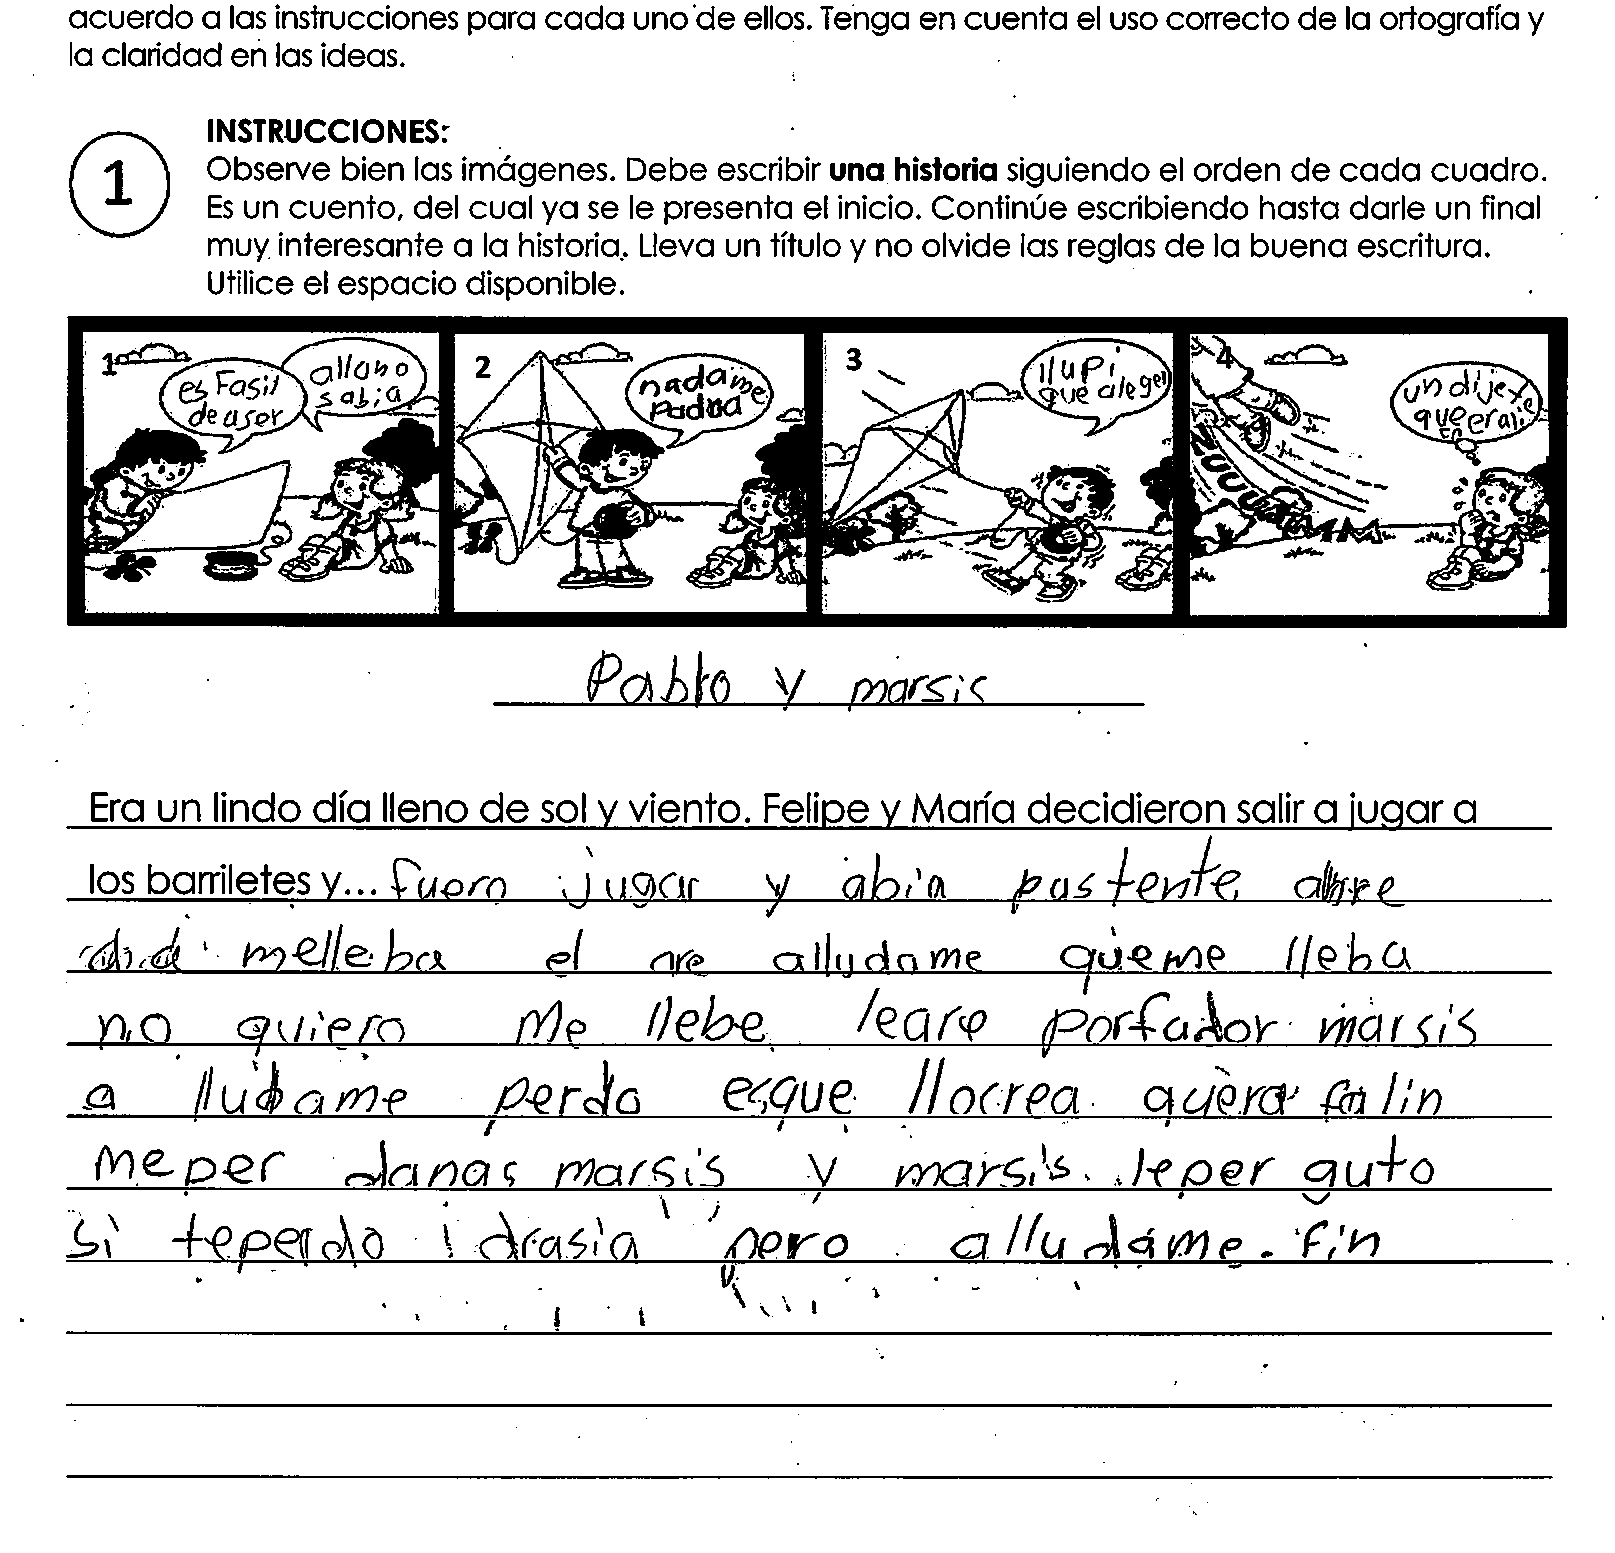 acuerdo a las instrucciones para cada uno de ellos. Tenga en cuenta el uso correcto de la ortografía y
la claridad en las ideas.
1
INSTRUCCIONES:
Observe bien las imágenes. Debe escribir una historia siguiendo el orden de cada cuadro.
Es un cuento, del cual ya se le presenta el inicio. Continúe escribiendo hasta darle un final
muy interesante a la historia. Lleva un título y no olvide las reglas de la buena escritura.
Utilice el espacio disponible.
1
es Fasil
de aser
allano
sabia
2
nadame
3
llupi
que alege
4
un dije
ZUUUUMMM
Pablo y marsis
Era un lindo día lleno de sol y viento. Felipe y María decidieron salir a jugar a
los barriletes y... fuero jugar y abia pastente
melleba el are alludame queme lleba
no quiero Me llebe porfador marsis
a lludame perdo esque llocrea
meper danas marsis y marsis leper guto
si teperdo drasia pero alludame. fin